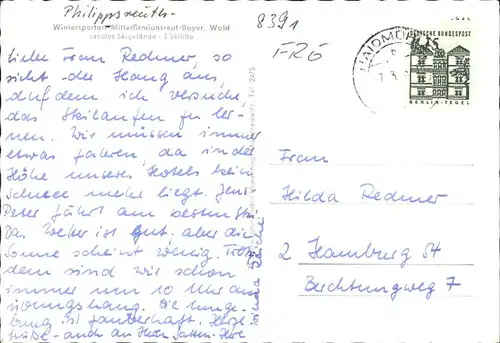 Philippsreuth-
8391
FRG
Wintersportort Mitterfirmiansreut-Bayer. Wald
ideales Skigelände - 3 Skilifte
Liebe Frau Redmer, so
sieht der Hang aus,
auf dem ich versuche,
das Skilaufen zu ler-
nen. Wir müssen immer
etwas fahren, da in der
Höhe unseres Hotels kein
Schnee mehr liegt. Jens
Peter fährt am besten Ski.
Das Wetter ist gut, aber die
Sonne scheint wenig. Trotz-
dem sind wir schon
immer um 10 Uhr am
Übungshang. Die Umge-
bung ist zauberhaft. Herzl.
Grüße - auch an Ihren Gatten - Ihre
DEUTSCHE BUNDESPOST
BERLIN-TEGEL
Frau
Hilda Redmer
2 Hamburg 54
Berchtungweg 7